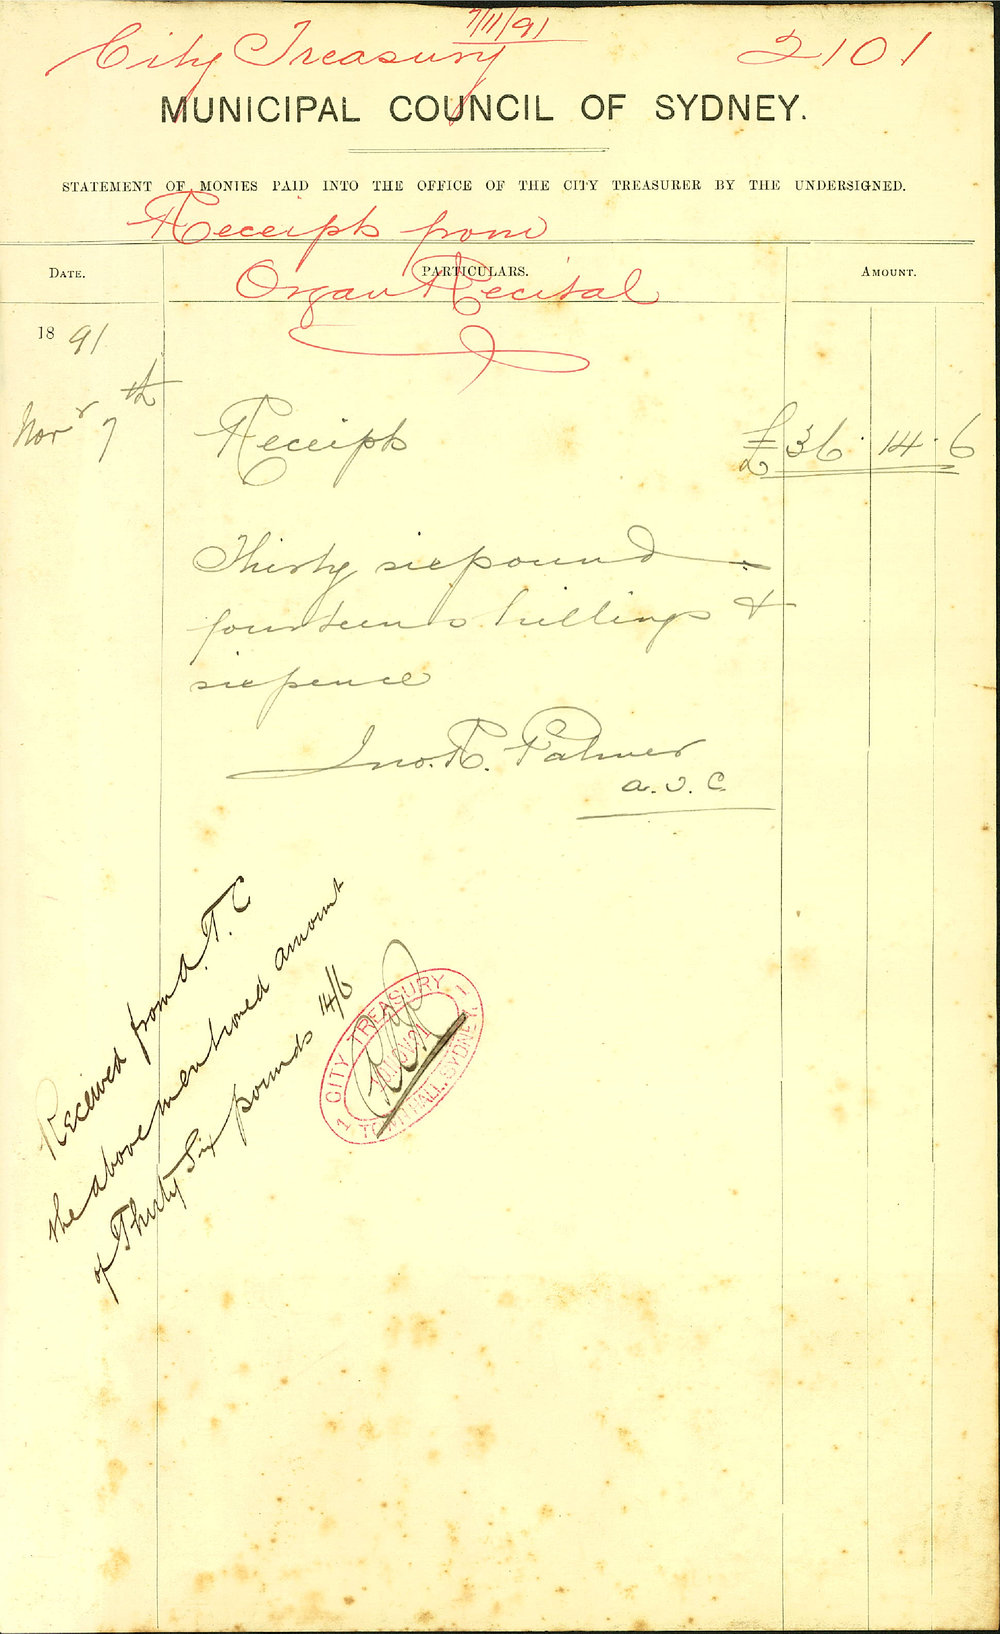 7/11/91
City Treasury 2101
MUNICIPAL COUNCIL OF SYDNEY.
STATEMENT OF MONIES PAID INTO THE OFFICE OF THE CITY TREASURER BY THE UNDERSIGNED.
Receipts from
DATE. PARTICULARS. AMOUNT.
Organ Recital
1891
Novr 7th Receipts £36. 14. 6
Thirty six pound
fourteen shillings &
sixpence
Jno. R. Palmer
A. T. C.
Received from A. T. C
the above mentioned amount
of Thirty Six pounds 14/6
1 CITY TREASURY 1
TOWN HALL, SYDNEY.